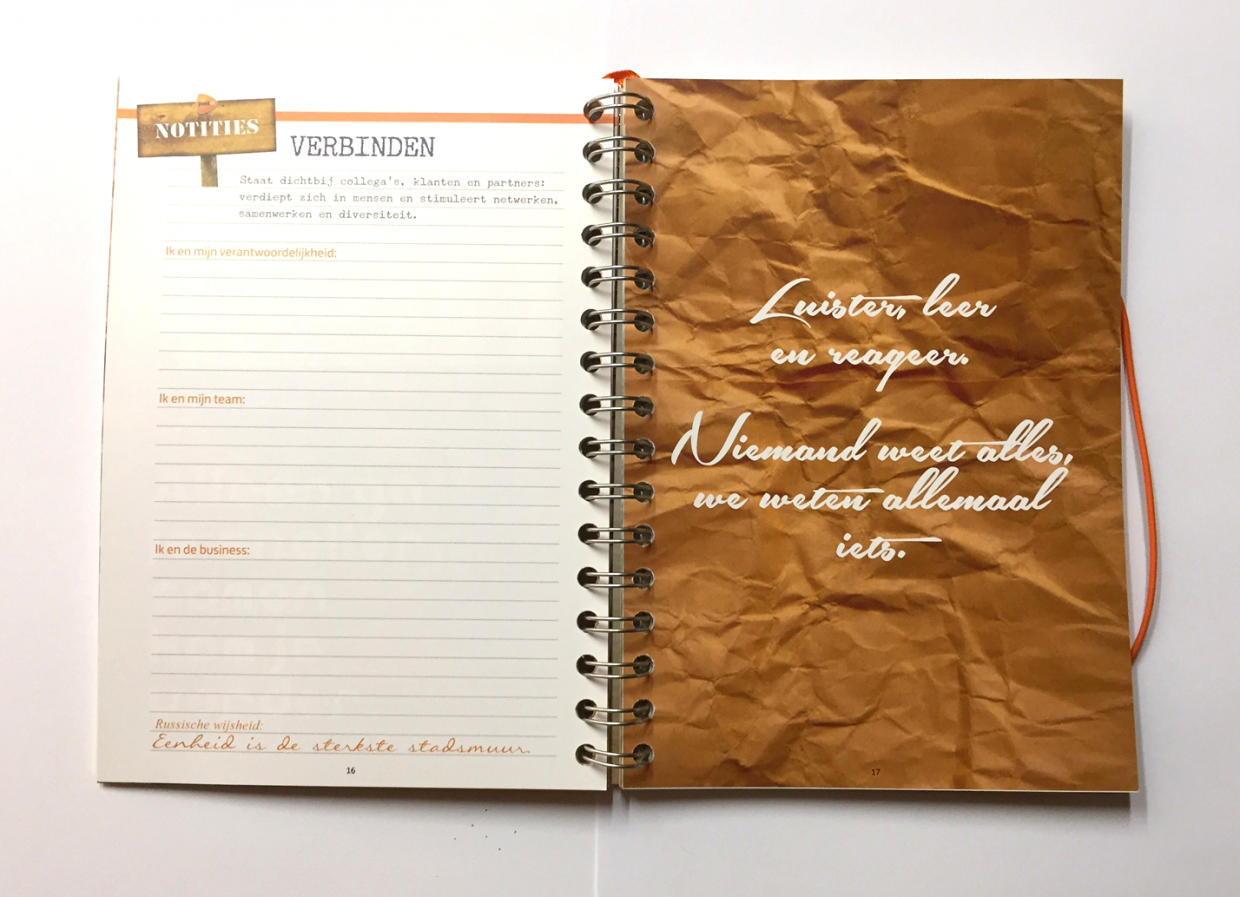 NOTITIES
VERBINDEN
Staat dichtbij collega's, klanten en partners:
verdiept zich in mensen en stimuleert netwerken,
samenwerken en diversiteit.
Ik en mijn verantwoordelijkheid:
Ik en mijn team:
Ik en de business:
Russische wijsheid:
Eenheid is de sterkste stadsmuur.
16
Luister, leer
en reageer.
Niemand weet alles,
we weten allemaal
iets.
17